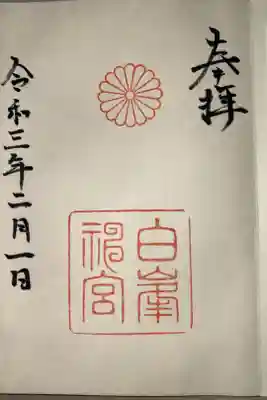 奉拝
白峯
神宮
令和三年二月一日